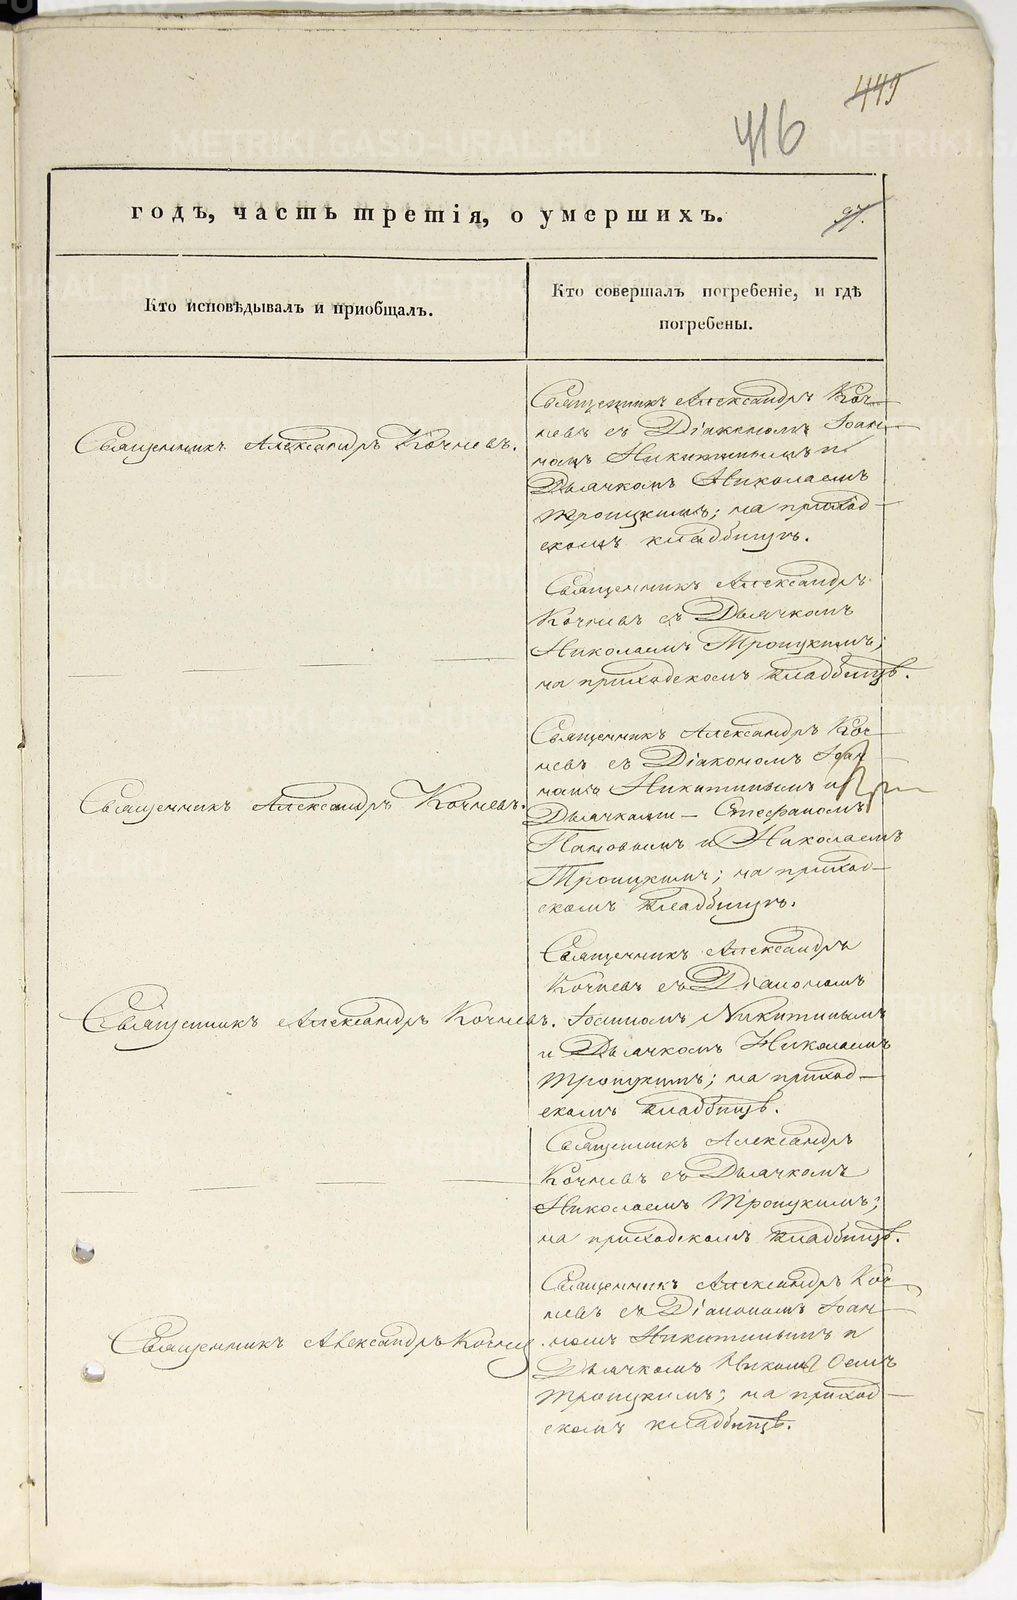 449
416
годъ, часть третія, о умершихъ.
97.
Кто исповѣдывалъ и пріобщалъ.
Кто совершалъ погребеніе, и гдѣ
погребены.
Священникъ Александръ Кочневъ.
Священникъ Александръ Коч-
невъ съ Діакономъ Іоан-
номъ Никитинымъ и
Дьячкомъ Николаемъ
Троицкимъ; на приход-
скомъ кладбищѣ.
Священникъ Александръ
Кочневъ съ Дьячкомъ
Николаемъ Троицкимъ;
на приходскомъ кладбищѣ.
Священникъ Александръ Кочневъ.
Священникъ Александръ Коч-
невъ съ Діакономъ Іоан-
номъ Никитинымъ и
Дьячками — Стефаномъ
Поповымъ и Николаемъ
Троицкимъ; на приход-
скомъ кладбищѣ.
Священникъ Александръ Кочневъ.
Священникъ Александръ
Кочневъ съ Діакономъ
Іоанномъ Никитинымъ
и Дьячкомъ Николаемъ
Троицкимъ; на приход-
скомъ кладбищѣ.
Священникъ Александръ
Кочневъ съ Дьячкомъ
Николаемъ Троицкимъ;
на приходскомъ кладбищѣ.
Священникъ Александръ Кочневъ.
Священникъ Александръ Коч-
невъ съ Діакономъ Іоан-
номъ Никитинымъ и
Дьячкомъ Николаемъ
Троицкимъ; на приход-
скомъ кладбищѣ.
METRIKI.GASO-URAL.RU